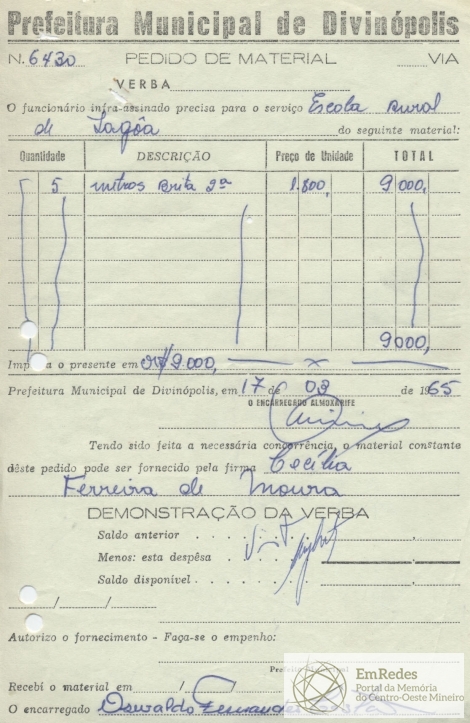 Prefeitura Municipal de Divinópolis
N. 6430 PEDIDO DE MATERIAL VIA
VERBA
O funcionário infra-assinado precisa para o serviço Escola Rural
de Lagôa do seguinte material:
Quantidade DESCRIÇÃO Preço de Unidade TOTAL
5 metros Brita 2ª 1.800, 9000,
9000,
o presente em 9.000, x
Prefeitura Municipal de Divinópolis, em 17 03 de 1965
O ENCARREGADO ALMOXARIFE
Tendo sido feita a necessária concorrência, o material constante
dêste pedido pode ser fornecido pela firma Cecília
Ferreira de Moura
DEMONSTRAÇÃO DA VERBA
Saldo anterior
Menos: esta despêsa
Saldo disponível
Autorizo o fornecimento - Faça-se o empenho:
Recebí o material em
O encarregado Oswaldo Fernandes
EmRedes
Portal da Memória
do Centro-Oeste Mineiro